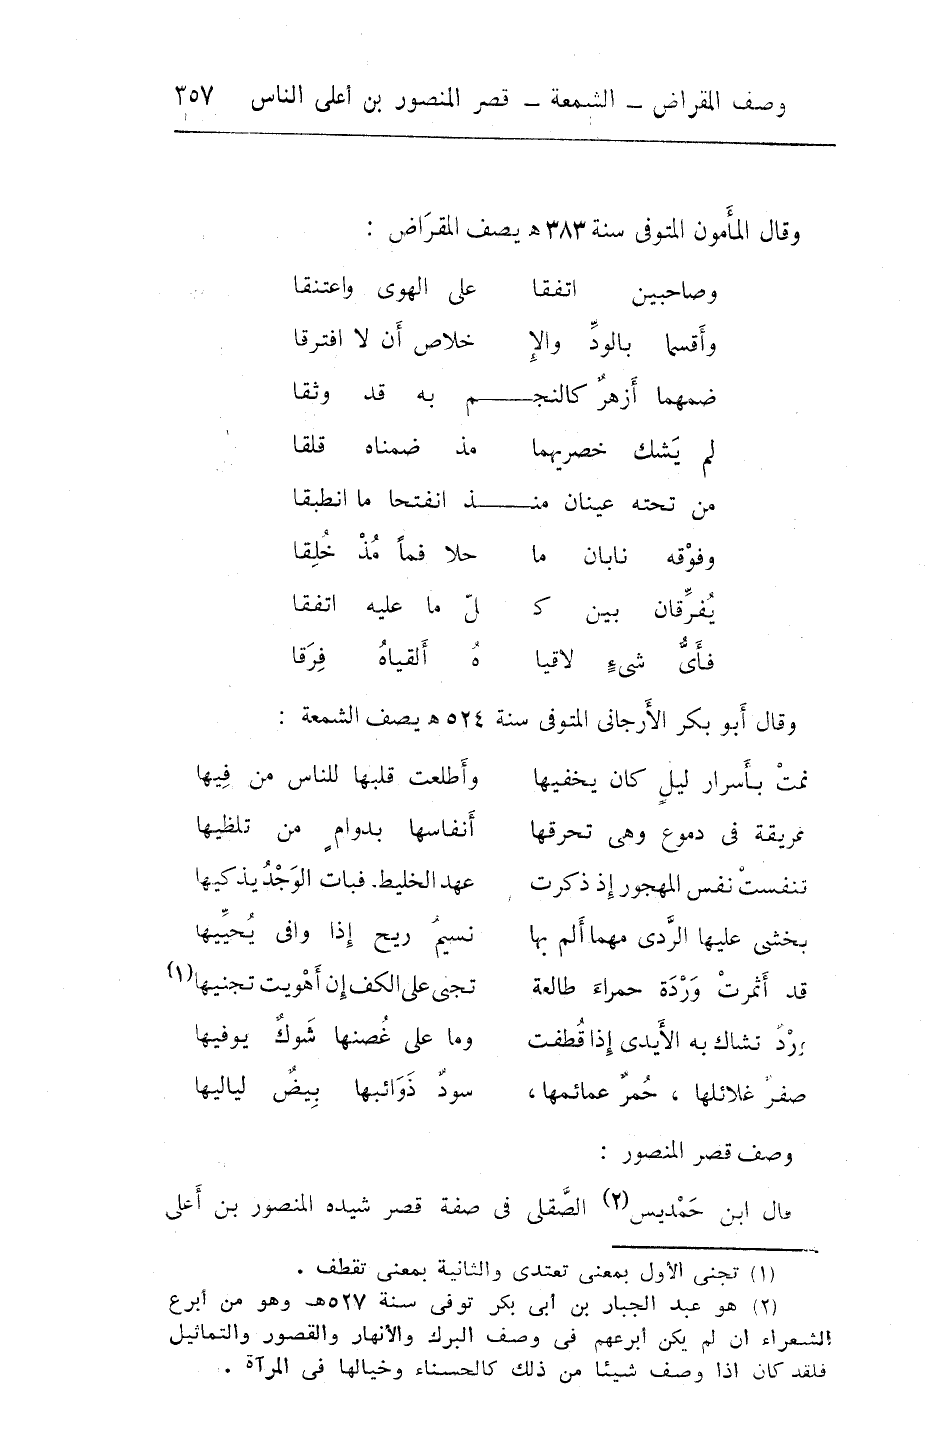 وصف المقراض – الشمعة – قصر المنصور بن أعلى الناس ٣٥٧
وقال المأَمون المتوفى سنة ٣٨٣ هـ يصف المقرَاض :
وصاحبين اتفقا على الهوى واعتنقا
وأَقسما بالودِّ والإِ خلاص أَن لا افترقا
ضمهما أَزهرٌ كالنجـــم به قد وثقا
لم يَشك خصريهما مذ ضمناه قلقا
من تحته عينان منـــذ انفتحا ما انطبقا
وفوْقه نابان ما حلا فماً مُذْ خُلِقا
يُفرِّقان بين كـ لّ ما عليه اتفقا
فأَىُّ شىءٍ لاقيا هُ أَلقياهُ فِرَقا
وقال أَبو بكر الأَرجانى المتوفى سنة ٥٢٤ هـ يصف الشمعة :
نمتْ بأَسرار ليلٍ كان يخفيها وأَطلعت قلبها للناس من فِيها
غريقة فى دموع وهى تحرقها أَنفاسها بدوامٍ من تلظيها
تنفستْ نفس المهجور إذ ذكرت عهد الخليط. فبات الوَجْدُ يذكيها
يخشى عليها الرَّدى مهما أَلم بها نسيمُ ريح إذا وافى يُحيِّيها
قد أَثمرتْ وَرْدَة حمراءَ طالعة تجنى على الكف إن أَهْويت تجنيها(١)
وردٌ تشاك به الأَيدى إذا قُطفت وما على غُصنها شَوكٌ يوقيها
صفرٌ غلائلها ، حُمرٌ عمائمها ، سودٌ ذَوَائبها بِيضٌ لياليها
وصف قصر المنصور :
قال ابن حَمْديس(٢) الصَّقلى فى صفة قصر شيده المنصور بن أَعلى
(١) تجنى الأول بمعنى تعتدى والثانية بمعنى تقطف .
(٢) هو عبد الجبار بن أبى بكر توفى سنة ٥٢٧هـ وهو من أبرع
الشعراء ان لم يكن أبرعهم فى وصف البرك والأنهار والقصور والتماثيل
فلقد كان اذا وصف شيئا من ذلك كالحسناء وخيالها فى المرآة .